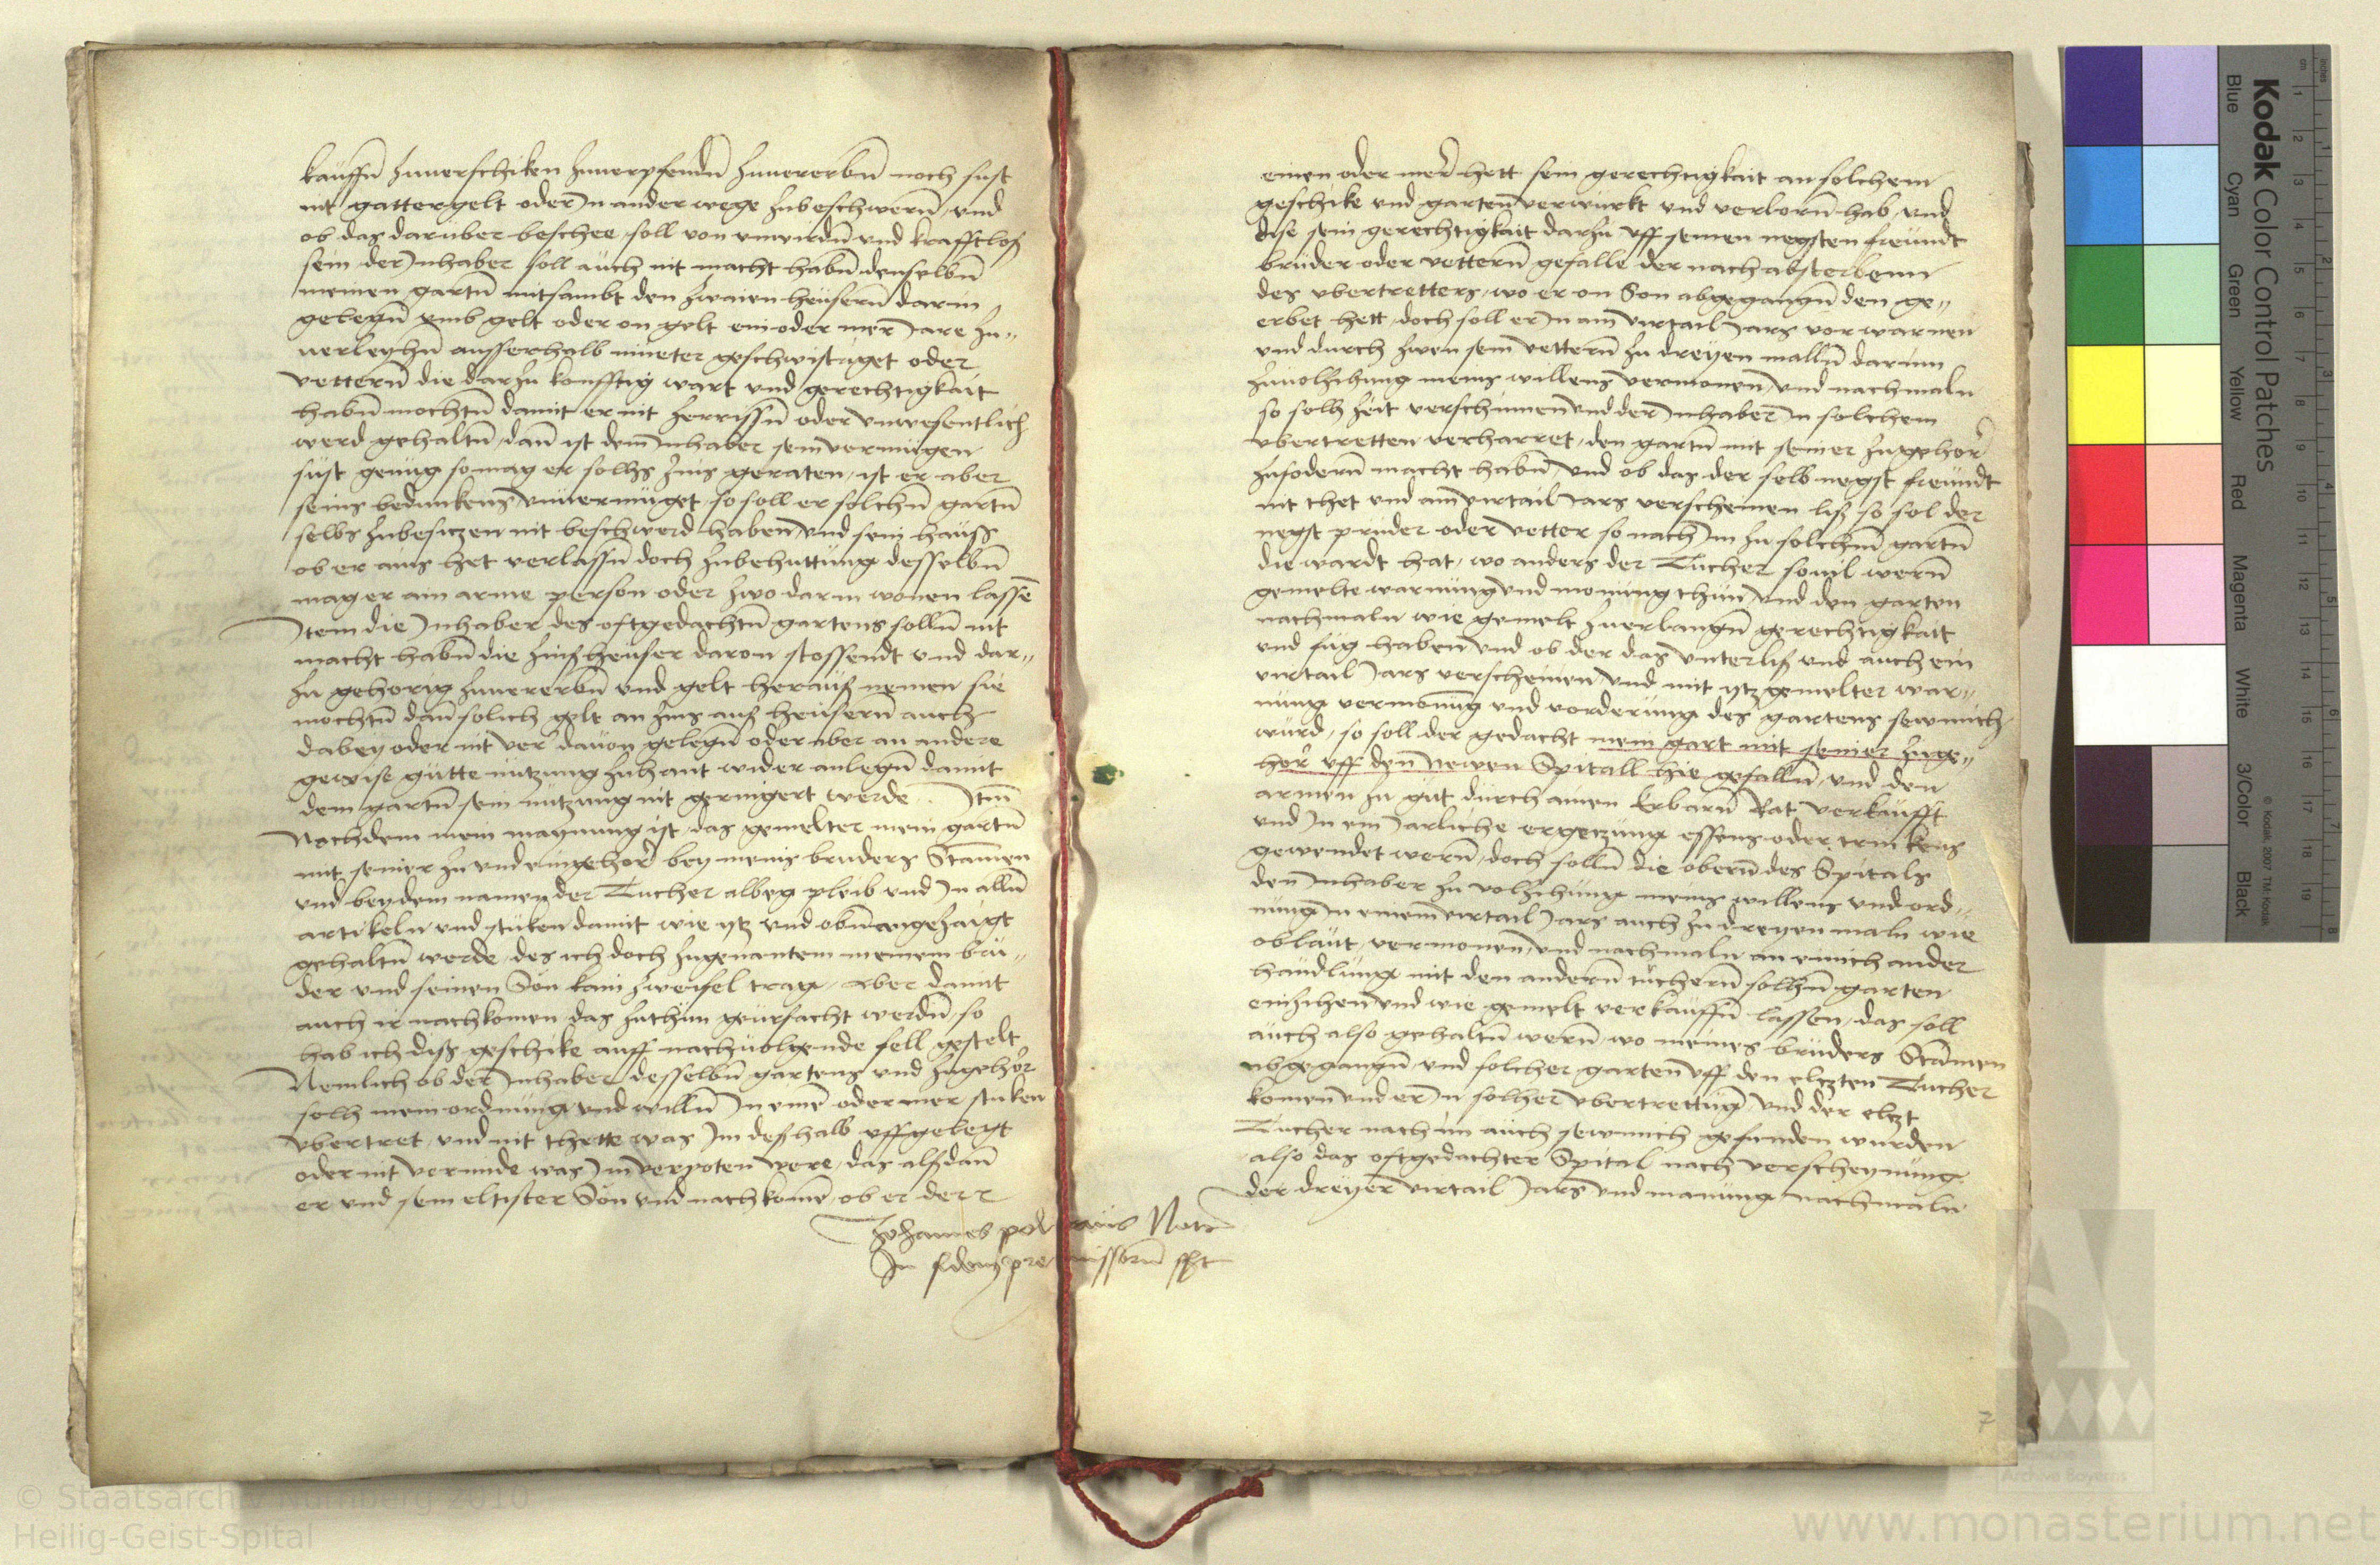 kauffn̄ zuuerschiken zuuerpfendn̄ zuuererbn̄ noch sust
mit gattergelt oder In ander wege zubeschwern̄ vnd
ob das daruber beschee soll von vnwirdn̄ vnd krafftlos
sein der Inhaber soll auch nit macht habn̄ denselbn̄
meinen gartn̄ mitsambt den zwaien heusern̄ darin
gelegn̄ vmb gelt oder on gelt ein oder mer Jare zu„
uerleyhn̄ ausserhalb geschwistriget oder
vettern̄ die darzu konfftig wart vnd gerechtigkait
habn̄ mochtn̄ damit er nit zerrissn̄ oder vnwesentlich
werd gehaltn̄ dan̄ ist dem Inhaber sein vermugen
sust genug so mag er solhs zins geraten ist er aber
seins bedunkens vnuermuget so soll er solchn̄ gartn̄
selbs zubesitzen nit beschwerd haben vnd sein hauss
ob er ains het verlassn̄ doch zubehuttung desselbn̄
mag er ain arme person oder zwo darin wonen lassē
Item die Inhaber des oftgedachtn̄ gartens solln̄ nit
macht habn̄ die zinsheuser daron stossendt vnd dar„
zu gehorig zuuererbn̄ vnd gelt herauß nemen sie
mochtn̄ dan̄ solich gelt an zins auß heusern̄ auch
dabey oder nit ver dauon gelegn̄ oder aber an andere
gewise gutte nutzung zuhant wider anlegn̄ damit
dem gartn̄ sein nutzung nit geringert werde Itm̄
Nachdem mein maynung ist das gemelter mein gartn̄
mit seiner zu vnd eingehor bey meins bruders Stam̄en
vnd bey dem namen der Tucher albeg pleib vnd In alln̄
artikeln vnd stuken damit wie ytz vnd obn̄ angezaigt
gehaltn̄ werde des ich doch zugenantem meinem bru„
der vnd seinen Son kain zweifel trag Aber damit
auch ir nachkomen das zuthun geursacht werdn̄ so
hab ich diß geschike auff nachuolgende fell gestelt
Nemlich ob der Inhaber desselbn̄ gartens vnd zugehor
solh mein ordnung vnd willn̄ In einē oder mer stuken
vbertret vnd nit thette was Im deßhalb vffgelegt
oder nit vermide was Im verpoten were das alßdan̄
er vnd sein eltister Son vnd nachkomē ob er derr
Johannes pol aus Notr
In fidem pre missorū sst
einen oder mer hett sein gerechtigkait an solchem
geschike vnd garten verwurkt vnd verlorn̄ hab vnd
dise sein gerechtigkait darzu vff seinen negsten freundt
bruder oder vettern̄ gefalle der nach absterbenn
des vbertretters wo er on Son abgegangn̄ den ge„
erbet hett doch soll er In ain virtail Jars vor warnen
vnd durch zwen sein vettern̄ zu dreyen malln̄ darinn
zuuolzihung meins willens vermonen vnd nachmaln
so solh zeit verschinnen vnd der Inhaber In solchem
vbertretten verharret den gartn̄ mit seiner zugehor
zufodern̄ macht habn̄ vnd ob das der selb negst freundt
nit thet vnd ain virtail Jars verscheinen ließ so sol der
negst pruder oder vetter so nach Im zu solchm̄ gartn̄
die wardt hat wo anders der Tucher souil wern̄
gemelte warnung vnd monung thun vnd den garten
nachmaln wie gemelt zuerlangn̄ gerechtigkait
vnd fug haben vnd ob der das vnterließ vnd auch ein
virtail Jars verscheinen vnd mit ytz gemelter war„
nung vermonung vnd vorderung des gartens sewmich
wurd so soll der gedacht mein gart mit seiner zuge„
hor vff den Newen Spitall hie gefalln̄ vnd den
armen zu gut durch ainen Erbarn̄ Rat verkaufft
vnd In ein Jarliche ergetzung essens oder trinkens
gewendet wern̄ doch solln̄ die obern̄ des Spitals
den Inhaber zu volzihung meins willens vnd ord„
nung In einem virtail Jars auch zu dreyen maln wie
oblaut vermonen vnd nachmaln an einich ander
handlung mit den andern̄ tuchern̄ solhn̄ garten
einzihen vnd wie gemelt verkauffn̄ lassen das soll
auch also gehaltn̄ wern̄ wo meines bruders Stamen
abgegangn̄ vnd solcher garten vff den eltzten Tucher
komen vnd er In solher vbertrettūg vnd der eltzt
Tucher nach im auch sewmich gefunden wurden
also das oftgedachter Spital nach verscheynung
der dreyer virtail Jars vnd manung nachmaln
7
Kodak Color Control Patches
Blue Cyan Green Yellow Red Magenta White 3/Color Black
© Kodak, 2007 TM: Kodak
© Staatsarchiv Nürnberg 2010
Heilig-Geist-Spital
Archive Bayerns
www.monasterium.net